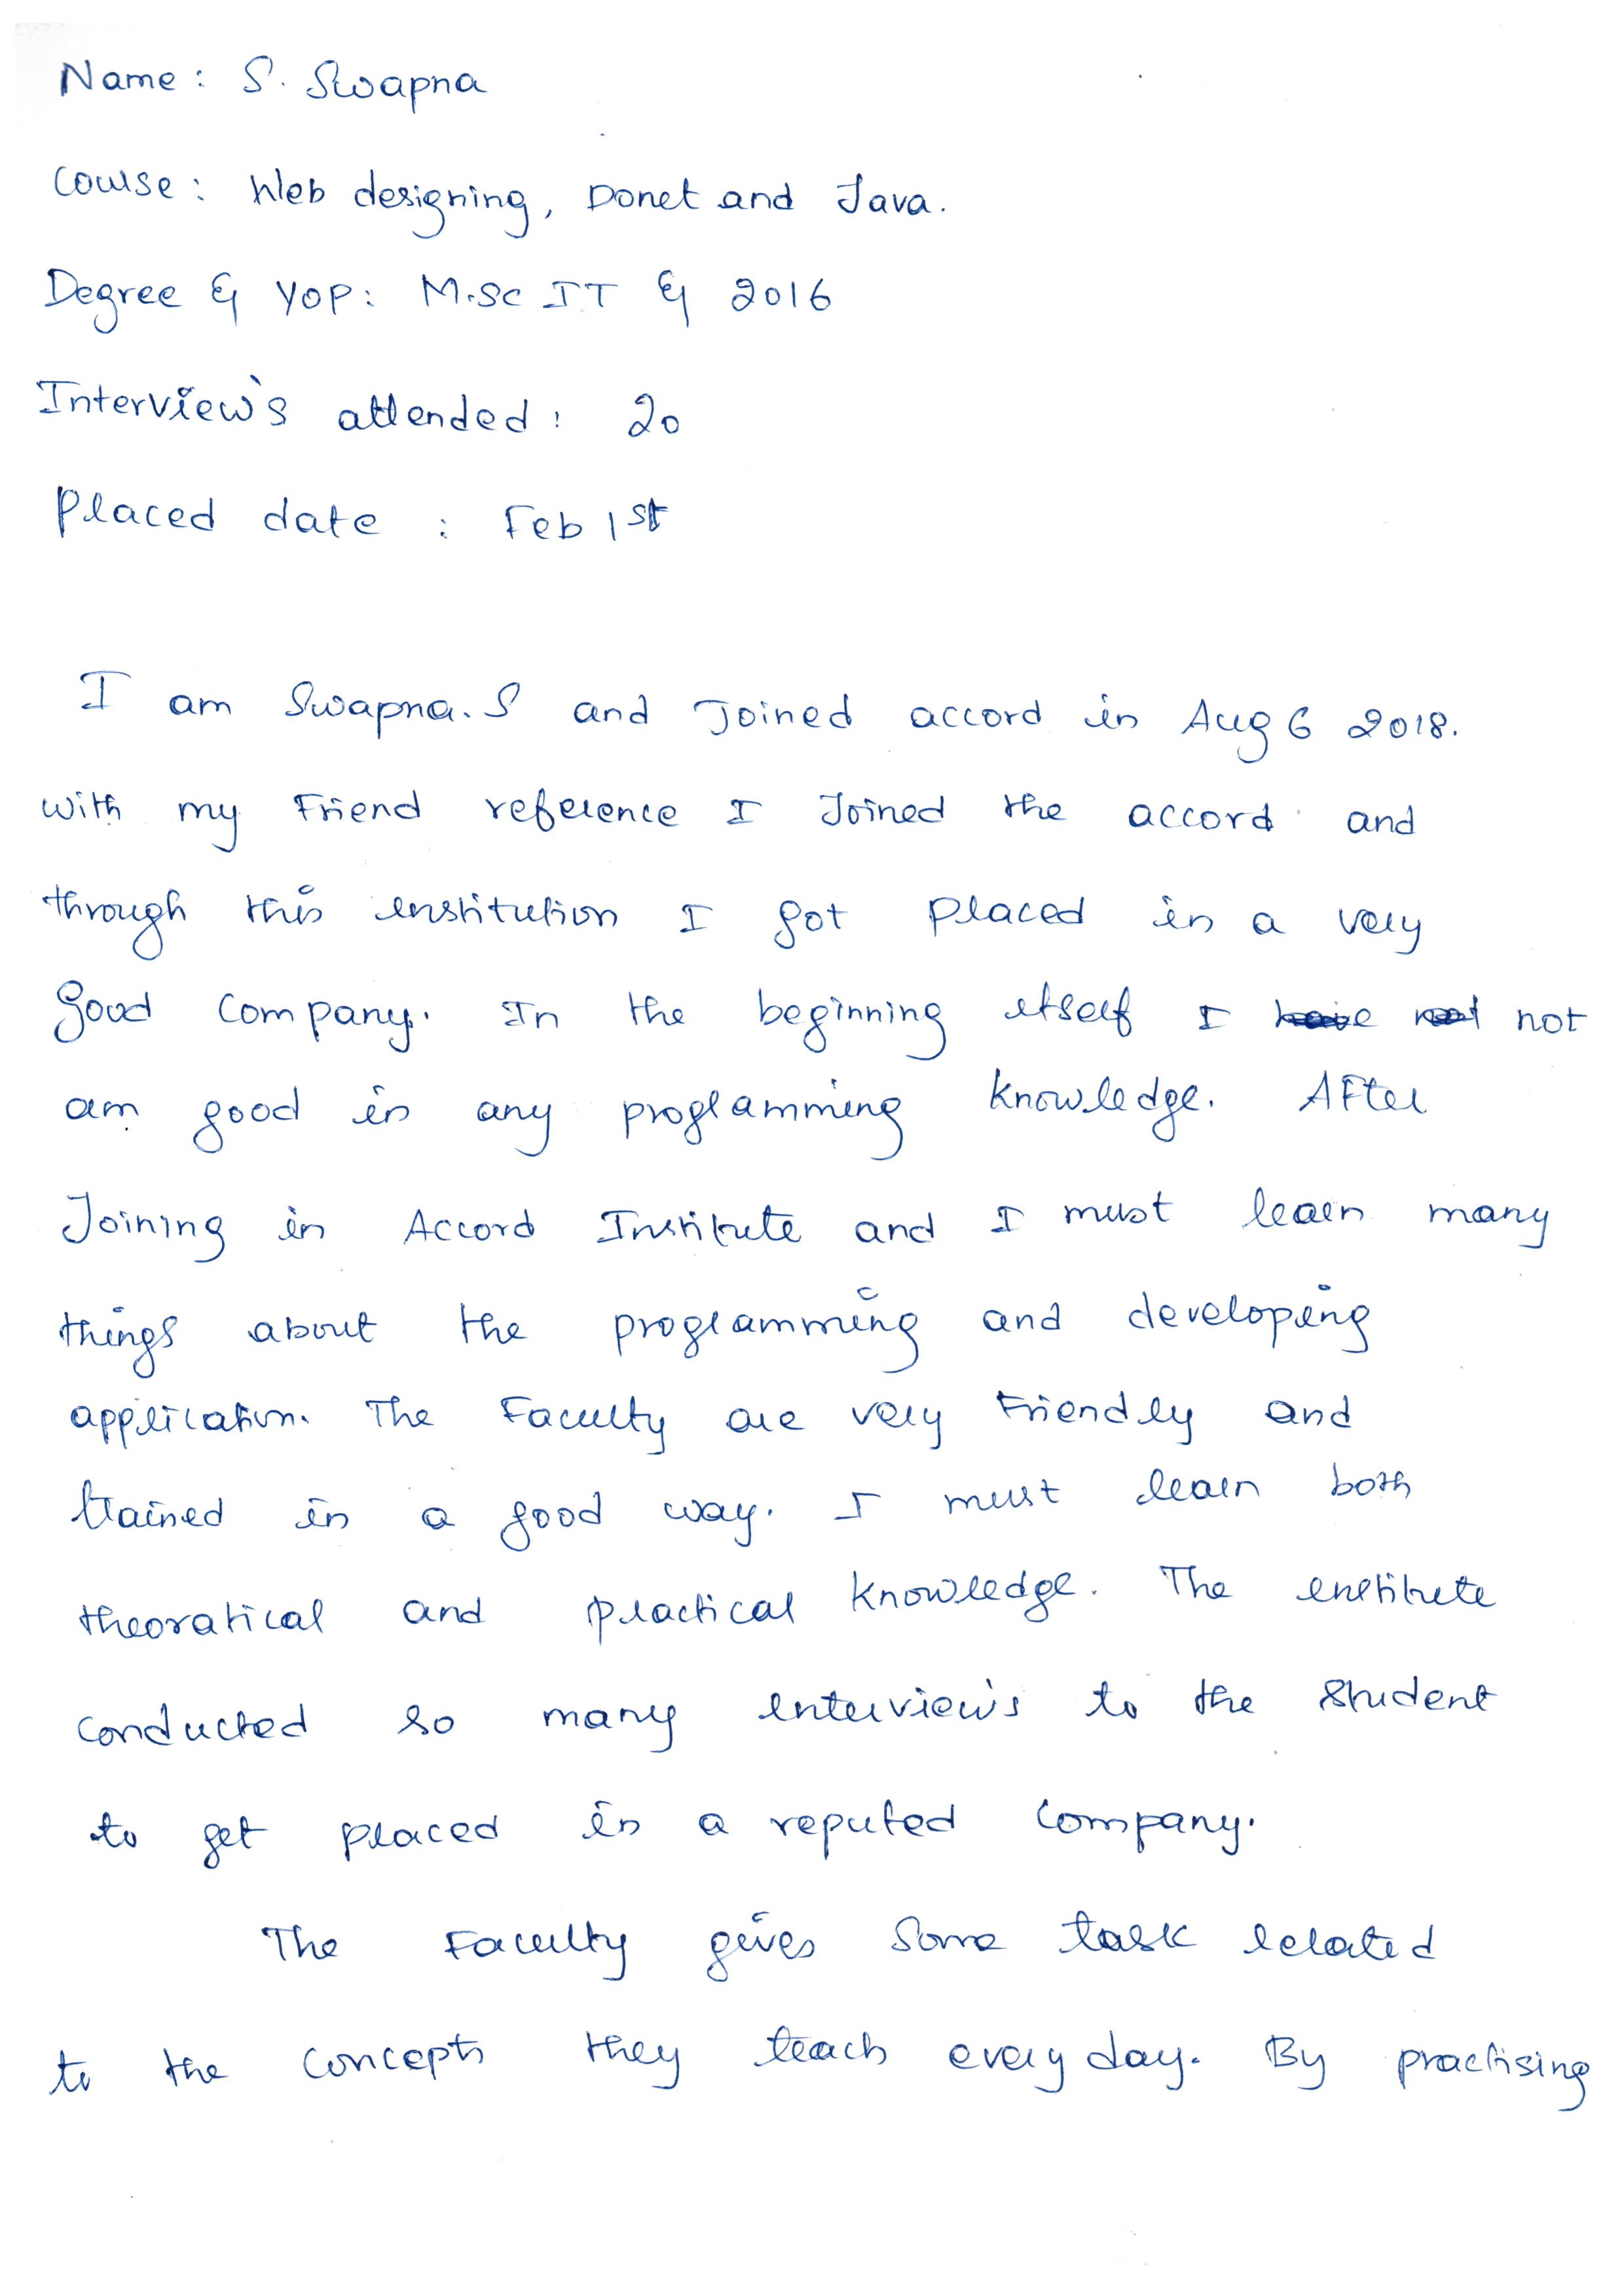 Name : S. Swapna
Course : Web designing, Donet and Java.
Degree & YOP : M.SC IT & 2016
Interview's attended : 20
Placed date : Feb 1st
I am Swapna. S and Joined accord in Aug 6 2018.
with my Friend reference I Joined the accord and
through this institution I got placed in a very
good company. In the beginning itself I not
am good in any programming knowledge. After
Joining in Accord Institute and I must learn many
things about the programming and developing
application. The Faculty are very Friendly and
trained in a good way. I must learn both
theoratical and practical knowledge. The institute
conducted so many interview's to the student
to get placed in a reputed company.
The Faculty gives some task related
to the concepts they teach every day. By practising